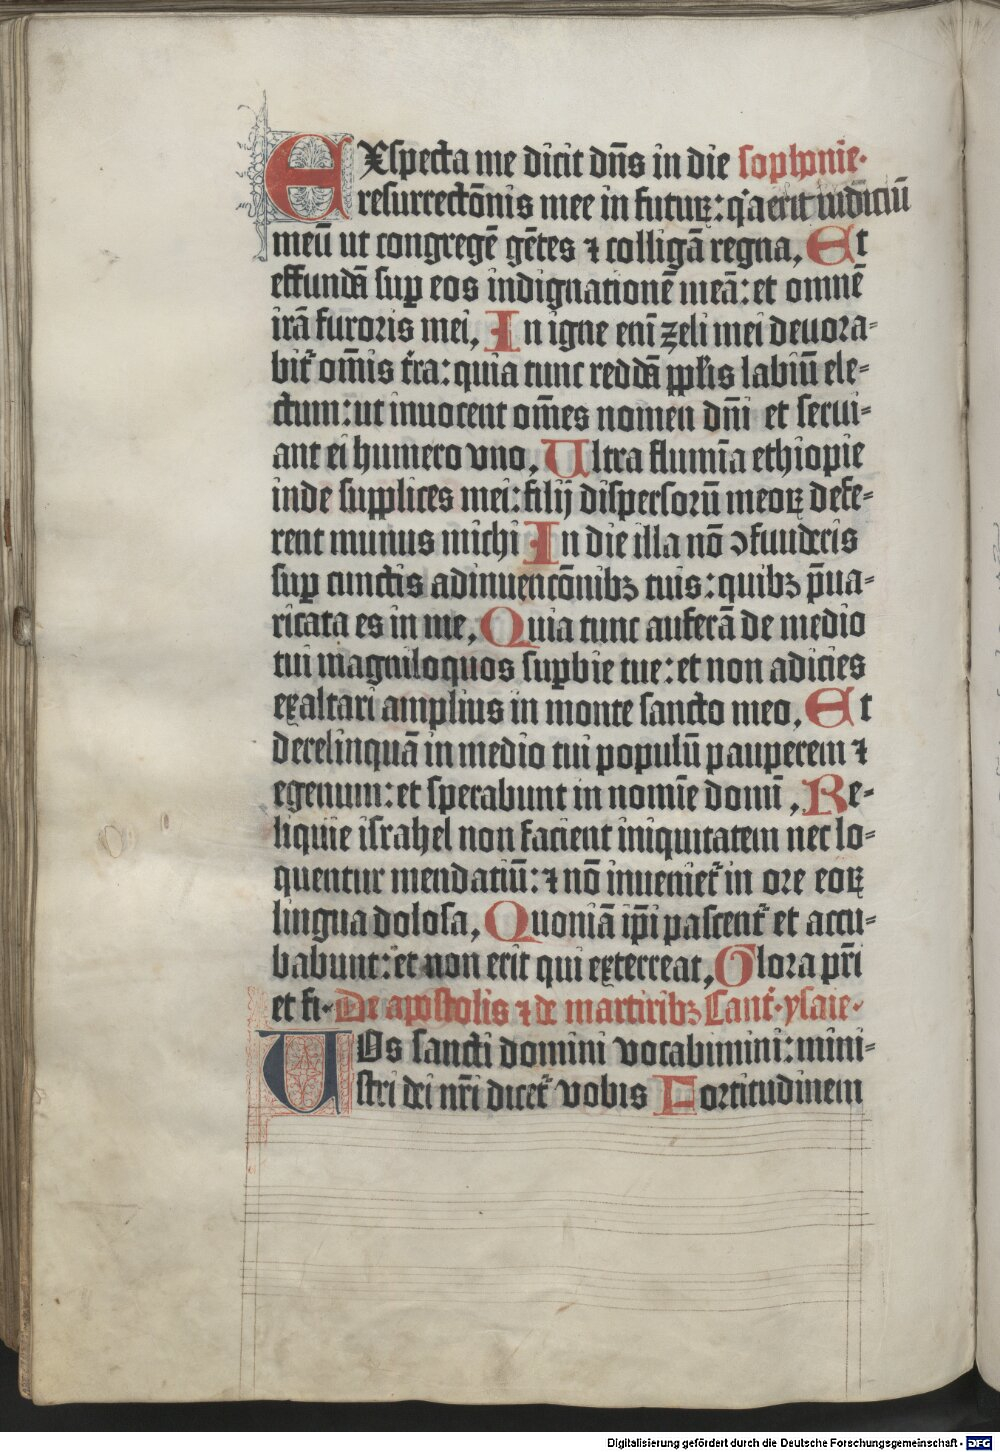 EXspecta me dicit dn̄s in die sophonie·
resurrectōnis mee in futuꝝ: q'a erit iudiciū
meū ut congregē gētes ⁊ colligā regna, Et
effundā sup̲ eos indignationē meā: et omnē
irā furoris mei, In igne eni̅ zeli mei deuora=
bit̉ om̄is t̉ra: quia tunc reddā pp̲lis labiū ele=
ctum: ut inuocent om̄es nomen dn̄i et serui=
ant ei humero vno, Ultra flumi̅a ethiopie
inde supplices mei: filij dispersorū meoꝝ defe=
rent munus michi In die illa nō ↄfunderis
sup̲ cunctis adinuencōnibꝫ tuis: quibꝫ p̄ua=
ricata es in me, Quia tunc auferā de medio
tui magniloquos sup̲bie tue: et non adicies
exaltari amplius in monte sancto meo, Et
derelinquā in medio tui populū pauperem ⁊
egenum: et sperabunt in nomi̅e domi̅, Re=
liquie israhel non facient iniquitatem nec lo=
quentur mendatiū: ⁊ nō inueniet̉ in ore eoꝝ
lingua dolosa, Quoniā ip̄i pascent̉ et accu=
babunt: et non erit qui exterreat, Glora pr̄i
et fi· De apostolis ⁊ de martiribꝫ Cant̉· ysaie·
UOs sancti domini vocabimini: mini=
stri dei nr̄i dicet̉ vobis Fortitudinem
Digitalisierung gefördert durch die Deutsche Forschungsgemeinschaft - DFG